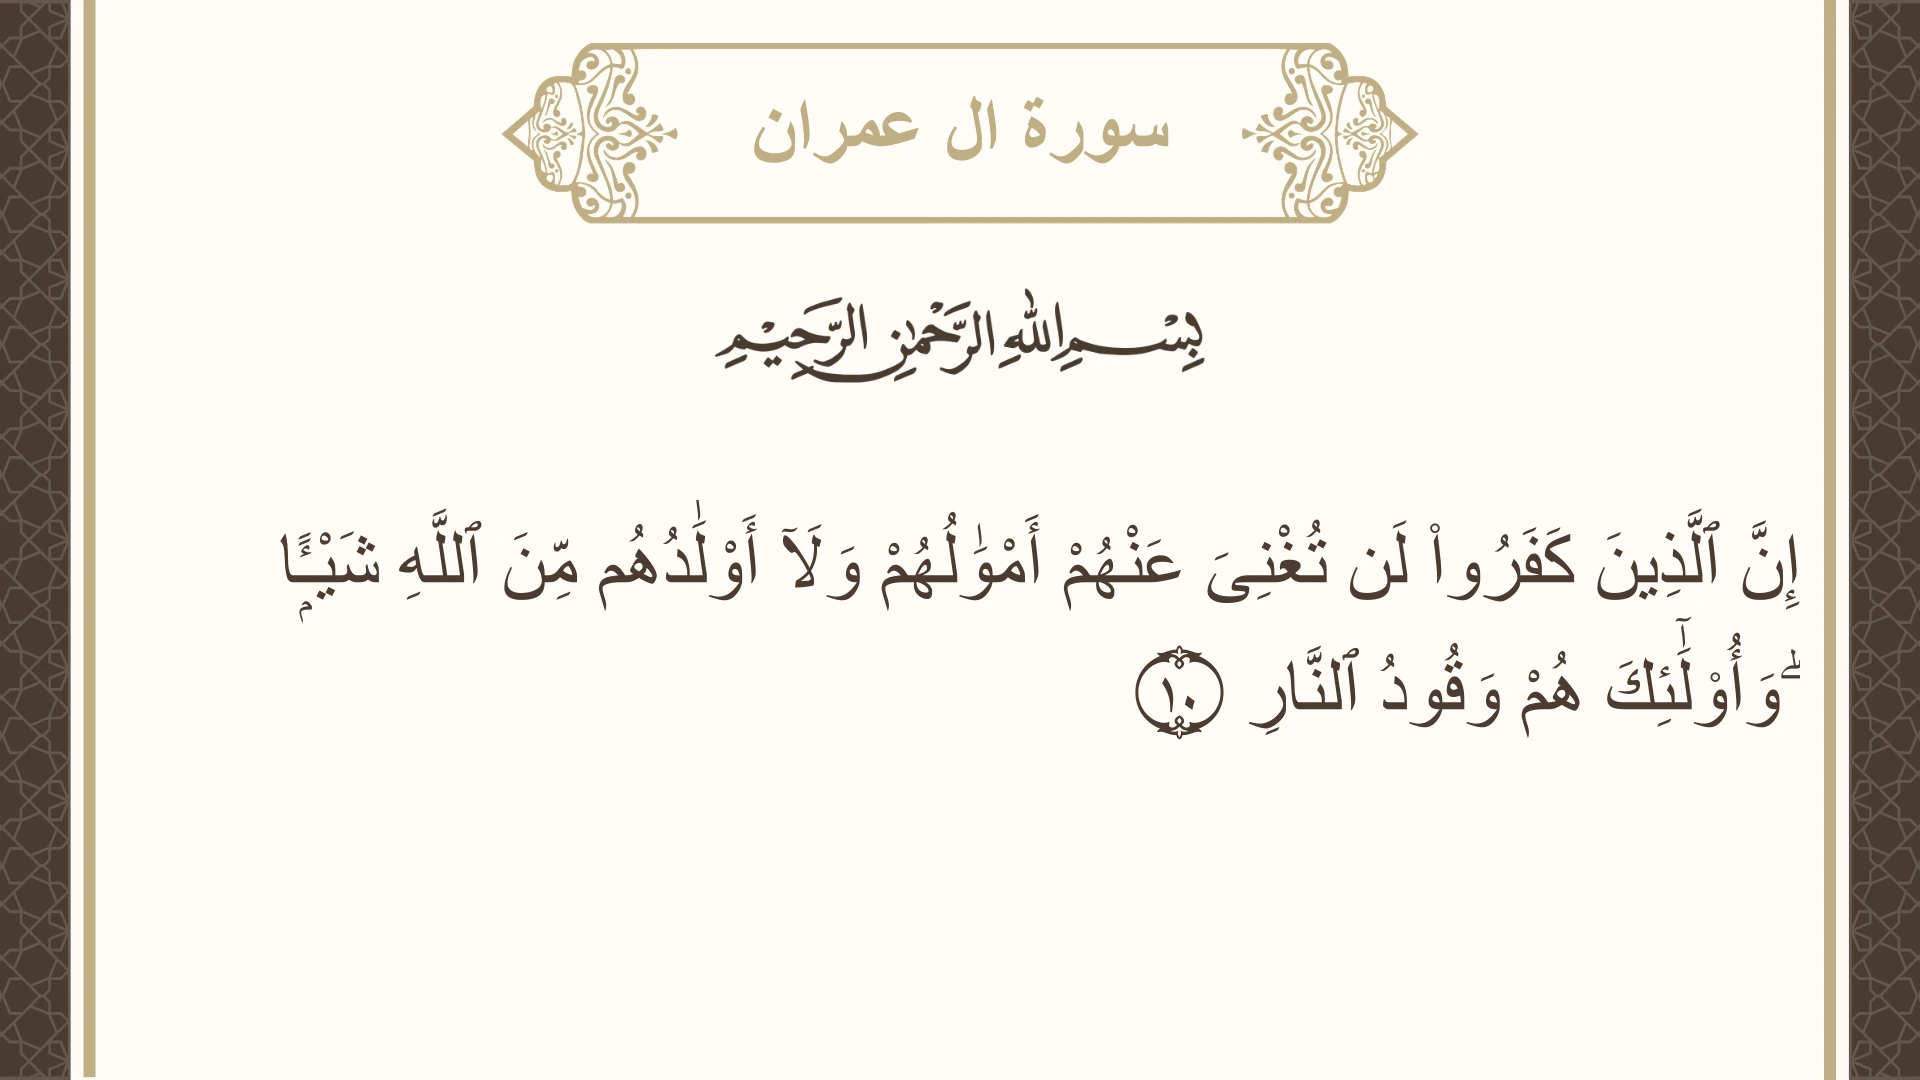 سورة ال عمران
بِسْمِ اللهِ الرَّحْمٰنِ الرَّحِيْمِ
إِنَّ ٱلَّذِينَ كَفَرُوا۟ لَن تُغْنِىَ عَنْهُمْ أَمْوَٰلُهُمْ وَلَآ أَوْلَٰدُهُم مِّنَ ٱللَّهِ شَيْـًٔاۭ
ۖ وَأُو۟لَٰٓئِكَ هُمْ وَقُودُ ٱلنَّارِ ١٠